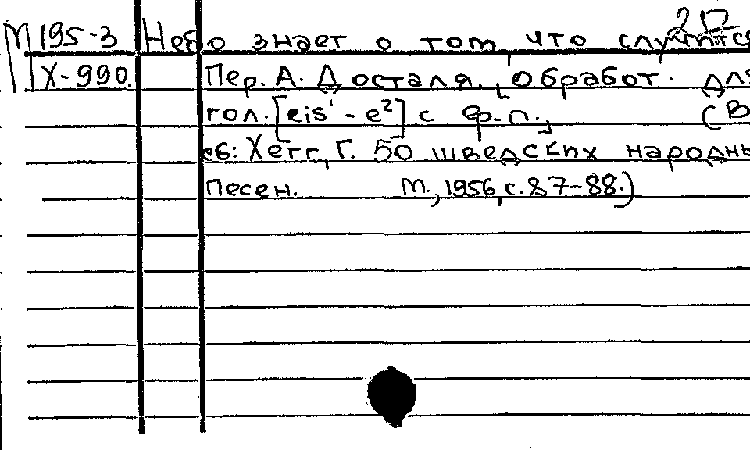 М 195-3 Небо знает о том, что случится
Х-990. Пер. А. Досталя., обработ. для
гол. [eis¹ - e²] с ф.п., (В
сб: Хегг, Г. 50 шведских народны
песен. М., 1956, с. 87-88.)